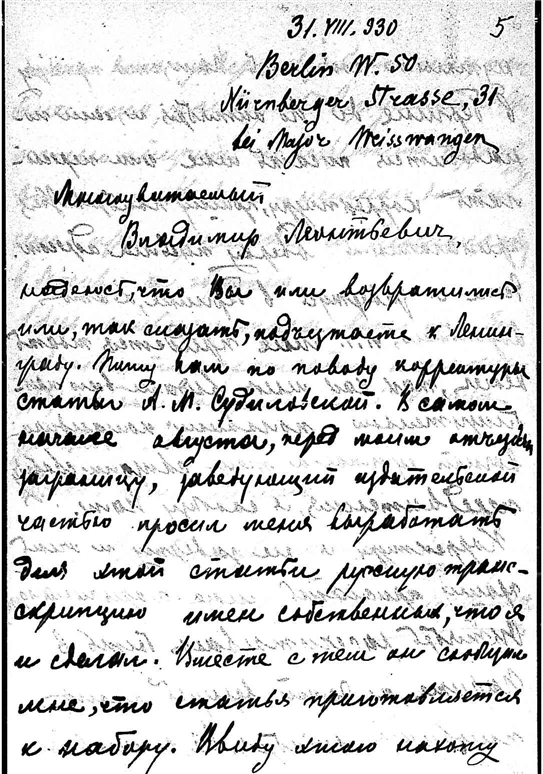 31.VIII.930 5
Berlin W. 50
Nürnberger Strasse, 31
bei Major Weisswangen
Многоуважаемый
Владимир Леонтьевич,
надеюсь, что Вы или возвратились
или, так сказать, подъезжаете к Ленин-
граду. Пишу Вам по поводу корректуры
статьи А. М. Судиловской. В самом
начале августа, перед моим отъездом
заграницу, заведующий издательской
частью просил меня выработать
для этой статьи русскую транс-
скрипцию имен собственных, что я
и сделал. Вместе с тем он сообщил
мне, что статья приготовляется
к набору. Ввиду этого нахожу